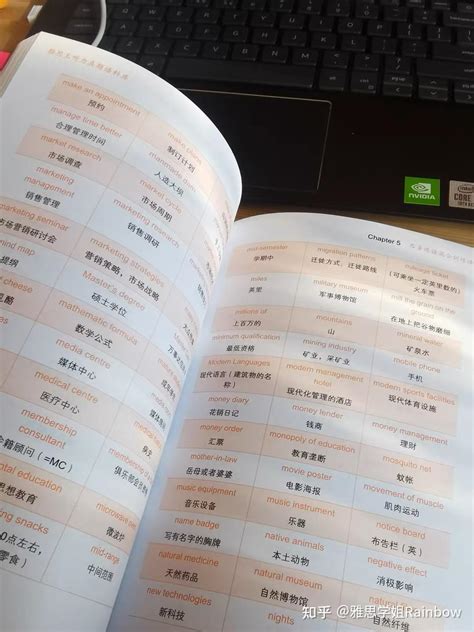 make an appointment
预约
make plans
制订计划
manage time better
合理管理时间
manmade
人造大坝
market research
市场调查
market cycle
市场周期
marketing management
销售管理
销售调研
marketing seminar
市场营销研讨会
marketing strategies
营销策略，市场战略
mind map
提纲
Master's degree
硕士学位
mathematic formula
数学公式
media centre
媒体中心
medical centre
医疗中心
membership consultant
会籍顾问（=MC）
membership
俱乐部会
思想教育
microwave oven
微波炉
mid-range
中间范围
Chapter 5
mid-semester
学期中
migration patterns
迁徙方式，迁徙路线
mileage ticket
（可乘坐一定英里数的）火车票
miles
英里
military museum
军事博物馆
mill the grain on the ground
在地上把谷物磨细
millions of
上百万的
mountains
山
mineral water
矿泉水
minimum qualification
最低资格
mining industry
矿业，采矿业
mobile phone
手机
Modern Languages
现代语言（建筑物的名称）
modern management hotel
现代化管理的酒店
modern sports facilities
现代体育设施
money diary
花销日记
money lender
钱商
money management
理财
money order
汇票
monopoly of education
教育垄断
mosquito net
蚊帐
mother-in-law
岳母或者婆婆
movie poster
电影海报
movement of muscle
肌肉运动
music equipment
音乐设备
music instrument
乐器
notice board
布告栏（英）
name badge
写有名字的胸牌
native animals
本土动物
negative effect
消极影响
natural medicine
天然药品
natural museum
自然博物馆
自然纤维
new technologies
新科技
nights
NVIDIA
CORE
知乎 @雅思学姐Rainbow